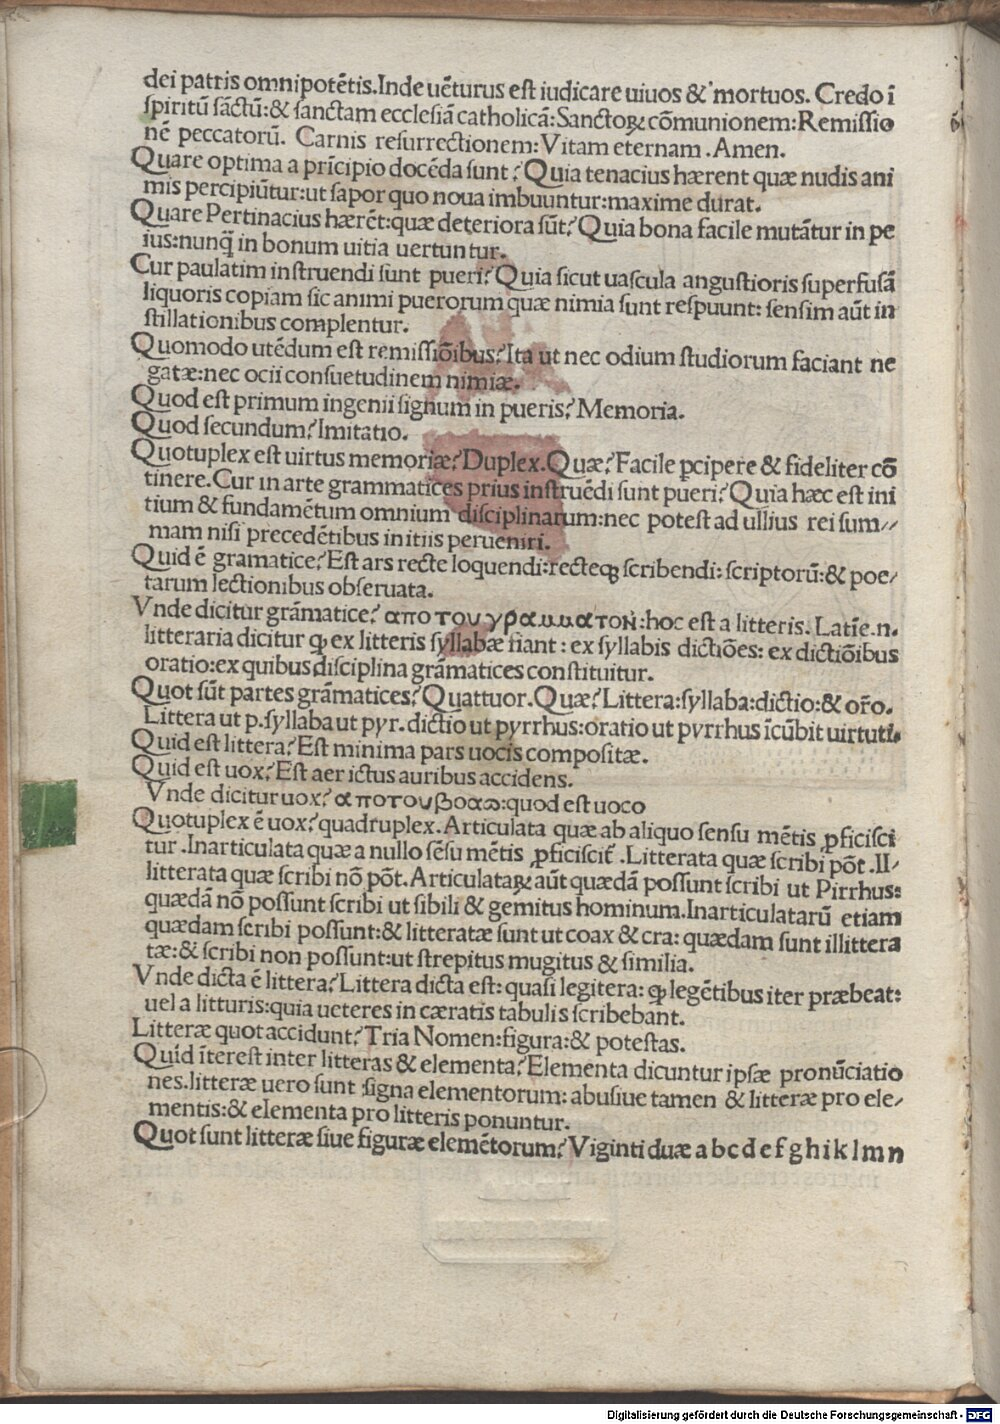 dei patris omnipotētis.Inde uēturus est iudicare uiuos & mortuos. Credo ī
spiritū sāctū:& sanctam ecclesiā catholicā:Sanctoꝝ cōmunionem:Remissio
nē peccatorū. Carnis resurrectionem:Vitam eternam .Amen.
Quare optima a prīcipio docēda sunt? Quia tenacius hærent quæ nudis ani
mis percipiūtur:ut sapor quo noua imbuuntur:maxime durat.
Quare Pertinacius hærēt:quæ deteriora sūt? Quia bona facile mutātur in pe
ius:nunq̄ in bonum uitia uertuntur.
Cur paulatim instruendi sunt pueri? Quia sicut uascula angustioris superfusā
liquoris copiam sic animi puerorum quæ nimia sunt respuunt: sensim aūt in
stillationibus complentur.
Quomodo utēdum est remissiōibus? Ita ut nec odium studiorum faciant ne
gatæ:nec ocii consuetudinem nimiæ.
Quod est primum ingenii signum in pueris? Memoria.
Quod secundum? Imitatio.
Quotuplex est uirtus memoriæ? Duplex.Quæ? Facile ꝑcipere & fideliter cō
tinere.Cur in arte grammatices prius instruēdi sunt pueri? Quia hæc est ini
tium & fundamētum omnium disciplinarum:nec potest ad ullius rei sum//
mam nisi precedētibus initiis perueniri.
Quid ē gramatice? Est ars recte loquendi:recteqꝫ scribendi: scriptorū:& poe/
tarum lectionibus obseruata.
Vnde dicitur grāmatice? απο του γραμματοн:hoc est a litteris. Latīe.n.
litteraria dicitur ꝙ ex litteris syllabæ fiant : ex syllabis dictiōes: ex dictiōibus
oratio:ex quibus disciplina grāmatices constituitur.
Quot sūt partes grāmatices? Quattuor.Quæ? Littera:syllaba:dictio:& or̄o.
Littera ut p.syllaba ut pyr.dictio ut pyrrhus:oratio ut pyrrhus īcūbit uirtuti.
Quid est littera? Est minima pars uocis compositæ.
Quid est uox? Est aer ictus auribus accidens.
Vnde dicitur uox? απο του βοαω:quod est uoco
Quotuplex ē uox? quadruplex.Articulata quæ ab aliquo sensu mētis ꝓficisci
tur .Inarticulata quæ a nullo sēsu mētis ꝓficiscit̄ .Litterata quæ scribi pōt .Il/
litterata quæ scribi nō pōt.Articulataꝝ aūt quædā possunt scribi ut Pirrhus:
quædā nō possunt scribi ut sibili & gemitus hominum.Inarticulatarū etiam
quædam scribi possunt:& litteratæ sunt ut coax & cra: quædam sunt illittera
tæ:& scribi non possunt:ut strepitus mugitus & similia.
Vnde dicta ē littera? Littera dicta est: quasi legitera: ꝙ legētibus iter præbeat:
uel a litturis:quia ueteres in cæratis tabulis scribebant.
Litteræ quot accidunt? Tria Nomen:figura:& potestas.
Quid īterest inter litteras & elementa? Elementa dicuntur ipsæ pronūciatio
nes.litteræ uero sunt signa elementorum: abusiue tamen & litteræ pro ele/
mentis:& elementa pro litteris ponuntur.
Quot sunt litteræ siue figuræ elemētorum? Viginti duæ a b c d e f g h i k l m n
Digitalisierung gefördert durch die Deutsche Forschungsgemeinschaft - DFG